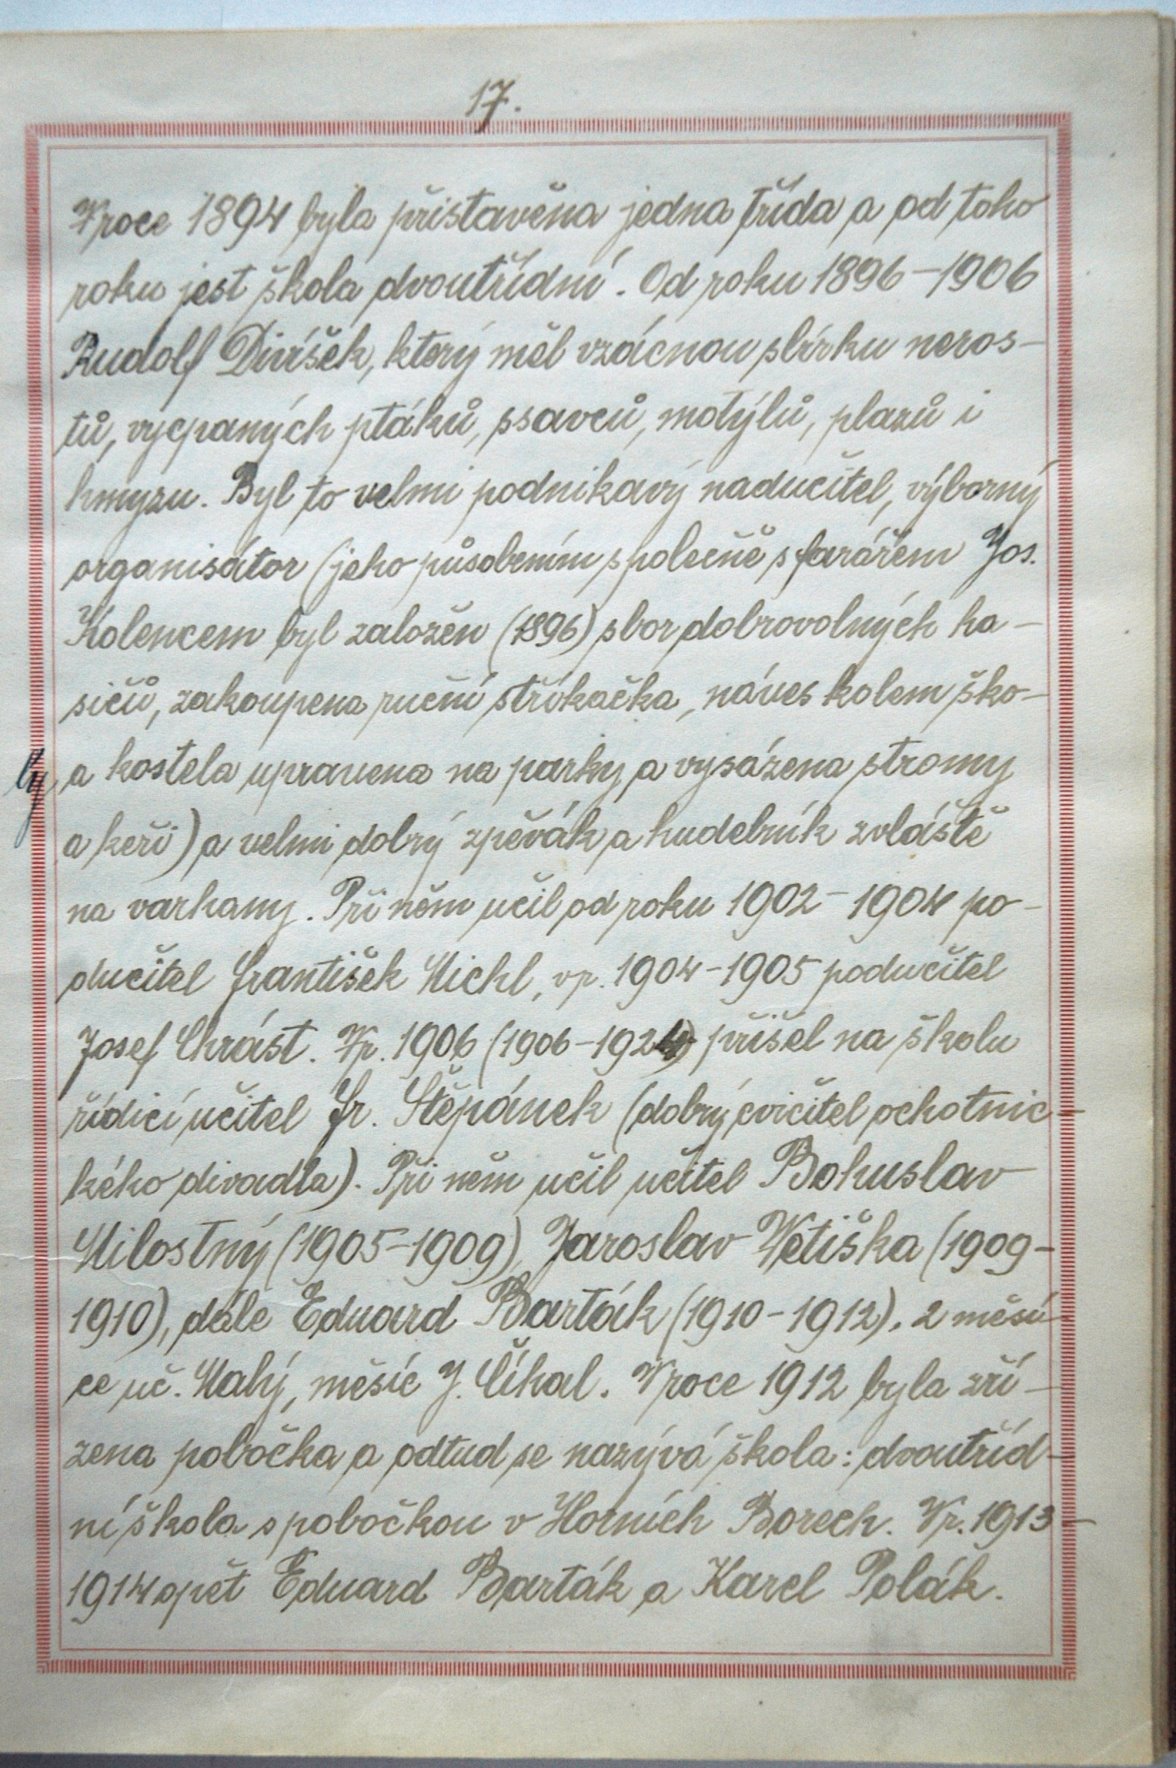 17.
V roce 1894 byla přistavěna jedna třída a od toho
roku jest škola dvoutřídní. Od roku 1896–1906
Rudolf Divíšek, který měl vzácnou sbírku neros-
tů, vycpaných ptáků, ssavců, motýlů, plazů i
hmyzu. Byl to velmi podnikavý naducitel, výborný
organisátor (jeho působením společně s farářem Jos.
Kolencem byl založen (1896) sbor dobrovolných ha-
sičů, zakoupena ruční stříkačka, náves kolem ško-
ly a kostela upravena na parky a vysázena stromy
a keři) a velmi dobrý zpěvák a hudebník zvláště
na varhany. Při něm učil od roku 1902–1904 po-
dučitel František Michl, v r. 1904–1905 podučitel
Josef Chrást. V r. 1906 (1906–1924) přišel na školu
řídící učitel Fr. Štěpánek (dobrý cvičitel ochotnic-
kého divadla). Při něm učil učitel Bohuslav
Milostný (1905–1909), Jaroslav Vetiška (1909–
1910), dále Eduard Barták (1910–1912). 2 měsí-
ce uč. Malý, měsíc J. Číhal. V roce 1912 byla zří-
zena pobočka a odtud se nazývá škola: dvoutříd-
ní škola s pobočkou v Horních Borech. V r. 1913–
1914 opět Eduard Barták a Karel Polák.